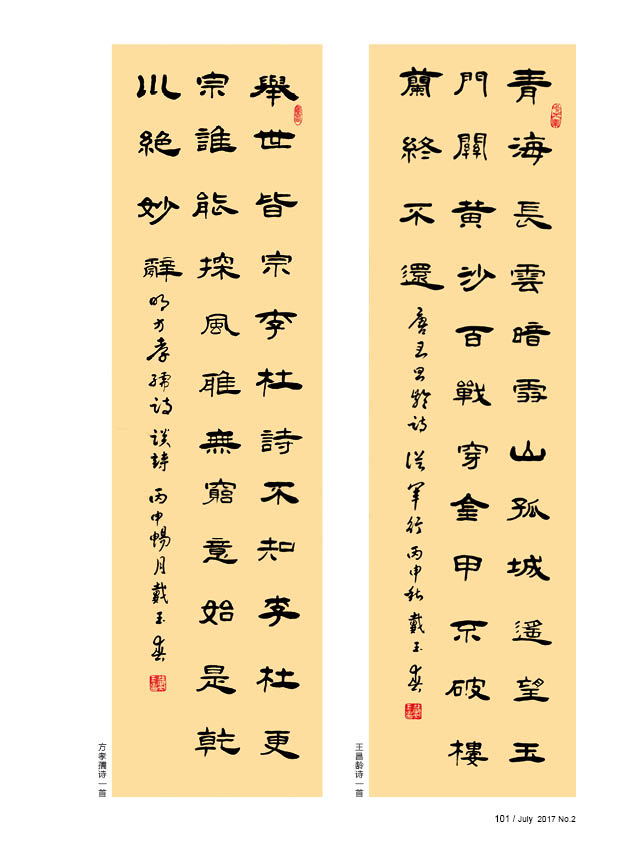 青海長雲暗雪山孤城遥望玉
門關黄沙百戰穿金甲不破樓
蘭終不還
唐王昌齡诗 從軍行 丙申秋 戴玉
王昌龄诗一首
舉世皆宗李杜詩不知李杜更
宗誰能探風雅無窮意始是乾
川絶妙辭
明方孝孺诗 談詩 丙申暢月戴玉
方孝孺诗一首
101 / July 2017 No.2